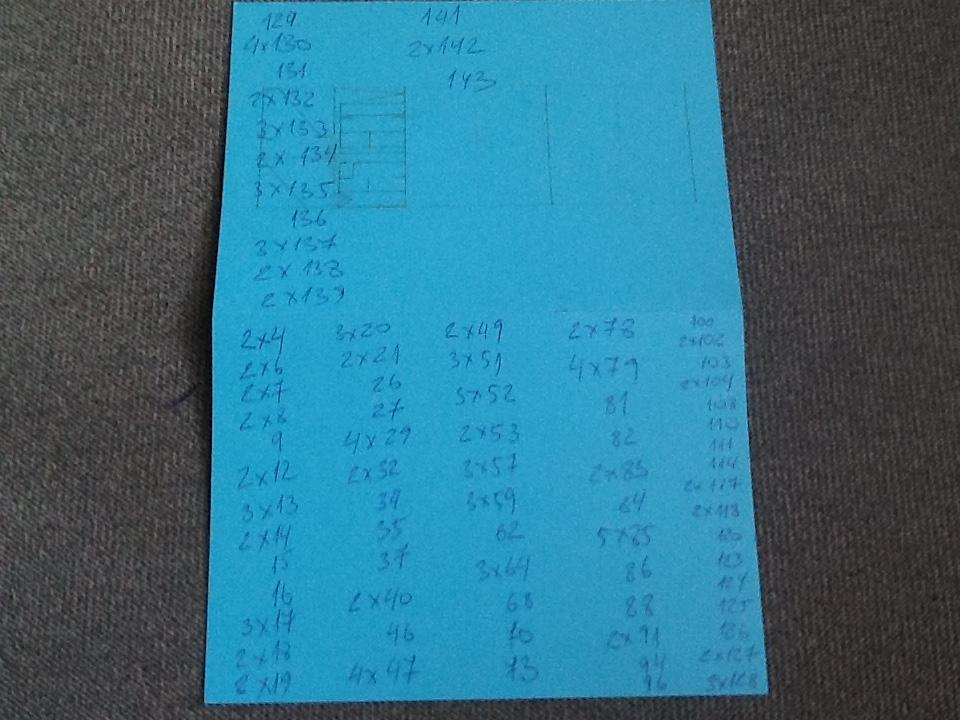 129
4x130
131
2x132
3x133
2x 134
3x135
136
3x137
2x 138
2x139
141
2x142
143
2x4
2x6
2x7
2x8
9
2x12
3x13
2x14
15
16
3x17
2x18
2x19
3x20
2x21
26
27
4x29
2x32
34
35
37
2x40
46
4x47
2x49
3x51
3x52
2x53
3x57
3x59
62
3x64
68
70
73
2x78
4x79
81
82
2x83
84
5x85
86
88
2x91
94
96
100
2x102
103
2x104
108
110
111
114
2x117
2x118
120
123
124
125
126
2x127
3x128